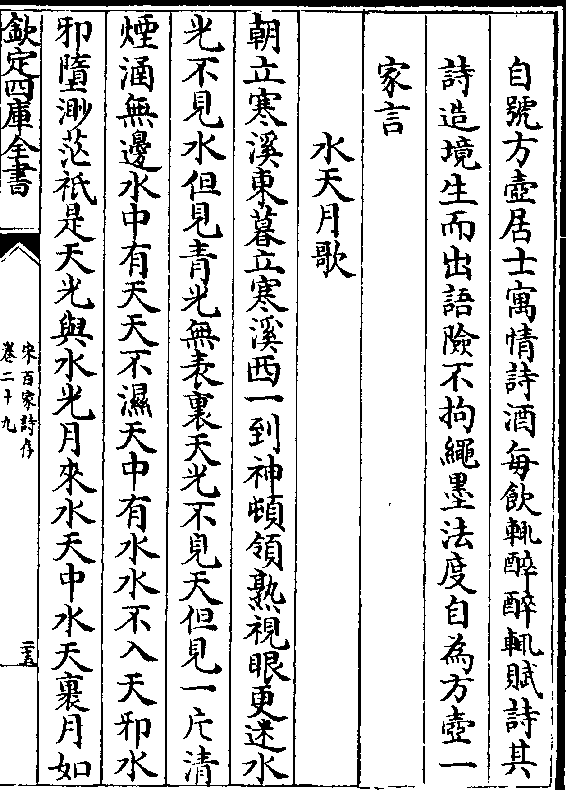 自號方壺居士寓情詩酒每飲輒醉醉輒賦詩其
詩造境生而出語險不拘繩墨法度自為方壺一
家言
水天月歌
朝立寒溪東暮立寒溪西一到神頓領熟視眼更迷水
光不見水但見青光無表裏天光不見天但見一片清
煙涵無邊水中有天天不濕天中有水水不入天邪水
邪墮渺茫祇是天光與水光月來水天中水天裏月如
欽定四庫全書
宋百家詩存
卷二十九
二十五